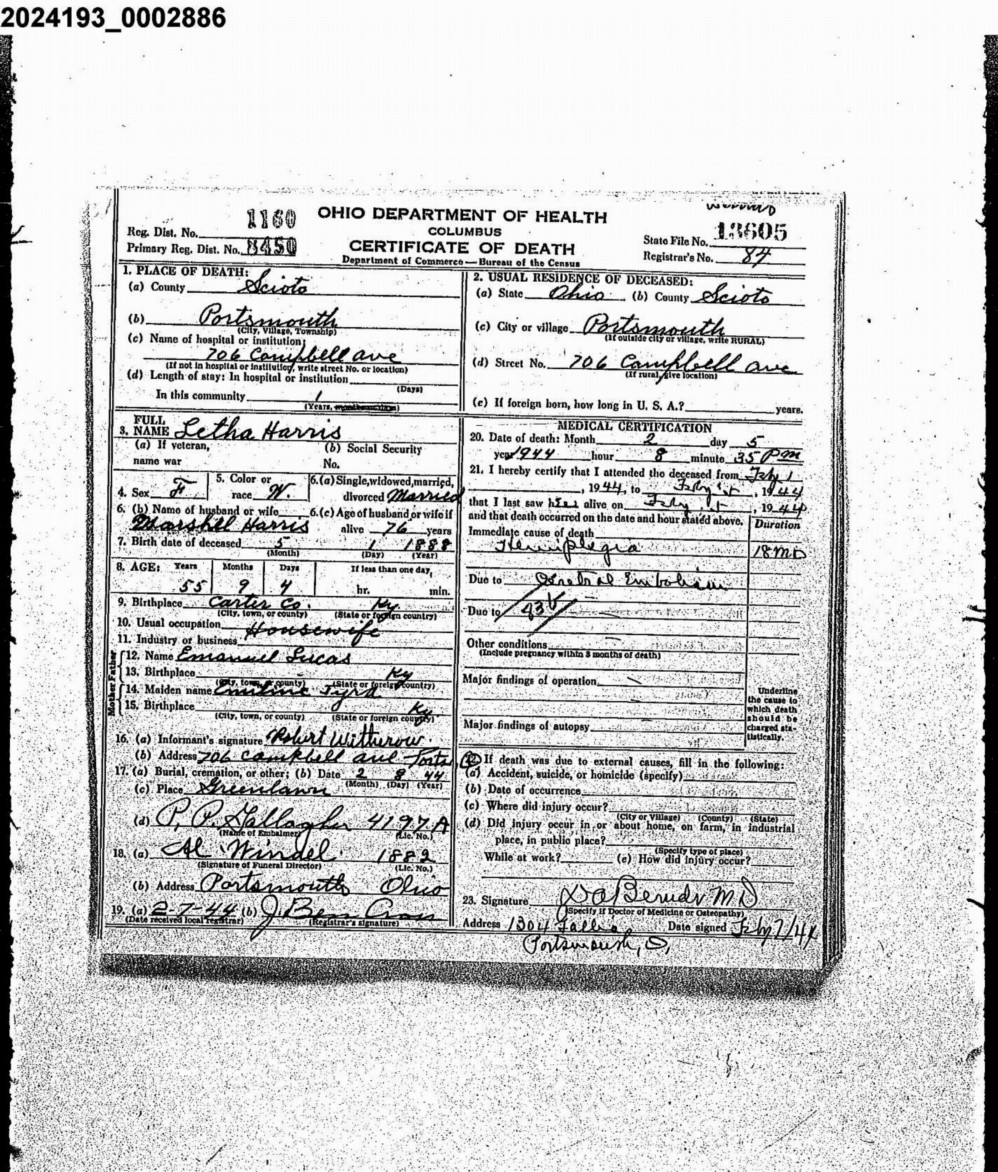 2024193_0002886
OHIO DEPARTMENT OF HEALTH
COLUMBUS
CERTIFICATE OF DEATH
Department of Commerce—Bureau of the Census
Reg. Dist. No. 1160
Primary Reg. Dist. No. 8450
State File No. 13605
Registrar's No. 84
1. PLACE OF DEATH:
(a) County Scioto
(b) Portsmouth
(City, Village, Township)
(c) Name of hospital or institution:
706 Campbell ave
(If not in hospital or institution, write street No. or location)
(d) Length of stay: In hospital or institution
(Days)
In this community 1
(Years,
2. USUAL RESIDENCE OF DECEASED:
(a) State Ohio (b) County Scioto
(c) City or village Portsmouth
(If outside city or village, write RURAL)
(d) Street No. 706 Campbell ave
(If rural, give location)
(e) If foreign born, how long in U. S. A.? years.
3. FULL NAME Letha Harris
(a) If veteran, name war
(b) Social Security No.
4. Sex F
5. Color or race W.
6. (a) Single, widowed, married, divorced Married
6. (b) Name of husband or wife
Marshell Harris
6. (c) Age of husband or wife if alive 76 years
7. Birth date of deceased 5 1 1888
(Month) (Day) (Year)
8. AGE: Years Months Days If less than one day,
55 9 4 hr. min.
9. Birthplace Carter Co. Ky.
(City, town, or county) (State or foreign country)
10. Usual occupation Housewife
11. Industry or business
Father
12. Name Emanuel Lucas
13. Birthplace Ky
(City, town, or county) (State or foreign country)
Mother
14. Maiden name
15. Birthplace Ky
(City, town, or county) (State or foreign country)
16. (a) Informant's signature Robert Witherow
(b) Address 706 Campbell ave Ports
17. (a) Burial, cremation, or other; (b) Date 2 8 44
(Month) (Day) (Year)
(c) Place Greenlawn
(d) P. P. Gallagher 4197A
(Name of Embalmer) (Lic. No.)
18. (a) Al Windel 1882
(Signature of Funeral Director) (Lic. No.)
(b) Address Portsmouth Ohio
19. (a) 2-7-44 (b) J
(Date received local registrar) (Registrar's signature)
MEDICAL CERTIFICATION
20. Date of death: Month 2 day 5
year 1944 hour 8 minute 35 PM
21. I hereby certify that I attended the deceased from Feby 1
, 1944, to Feby , 1944
that I last saw alive on Feby , 1944
and that death occurred on the date and hour stated above.
Duration
Immediate cause of death
Hemiplegia 18 MO
Due to Embolism
Due to
Other conditions
(Include pregnancy within 3 months of death)
Major findings of operation
Major findings of autopsy
Underline the cause to which death should be charged statistically.
22. If death was due to external causes, fill in the following:
(a) Accident, suicide, or homicide (specify)
(b) Date of occurrence
(c) Where did injury occur?
(City or Village) (County) (State)
(d) Did injury occur in or about home, on farm, in industrial
place, in public place?
(Specify type of place)
While at work? (e) How did injury occur?
23. Signature M D
(Specify if Doctor of Medicine or Osteopathy)
Address 1304 Date signed Feby 7/44
Portsmouth, O.